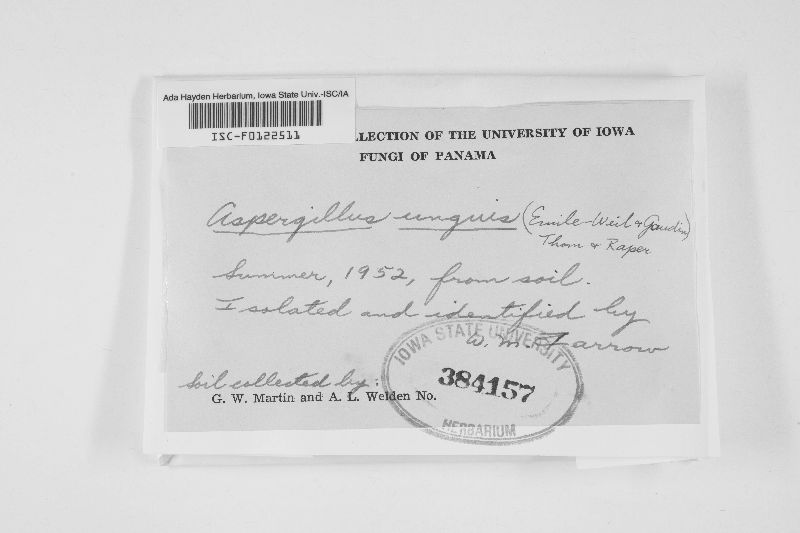 Ada Hayden Herbarium, Iowa State Univ.-ISC/IA
ISC-F0122511
LLECTION OF THE UNIVERSITY OF IOWA
FUNGI OF PANAMA
Aspergillus unguis (Emile-Weil & Gaudin)
Thom & Raper
Summer, 1952, from soil.
Isolated and identified by
W. M. Farrow
IOWA STATE UNIVERSITY
384157
HERBARIUM
Soil collected by:
G. W. Martin and A. L. Welden No.